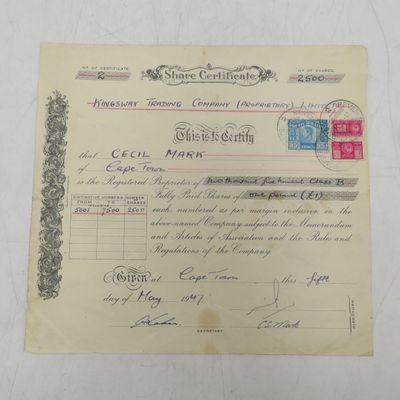 Nº OF CERTIFICATE
2
Share Certificate
Nº OF SHARES
2500
KINGSWAY TRADING COMPANY (PROPRIETARY) LIMITED
This is to Certify
that CECIL MARK
of Cape Town
is the Registered Proprietor of two thousand five hundred Class B
Fully Paid Shares of one pound (£1)
each numbered as per margin inclusive in the
above-named Company subject to the Memorandum
and Articles of Association and the Rules and
Regulations of the Company.
DISTINCTIVE NUMBERS
FROM TO
NUMBER OF SHARES
5001 7500 2500
Given at Cape Town, this fifth
day of May 1947
C S Mark
DIRECTORS
SECRETARY